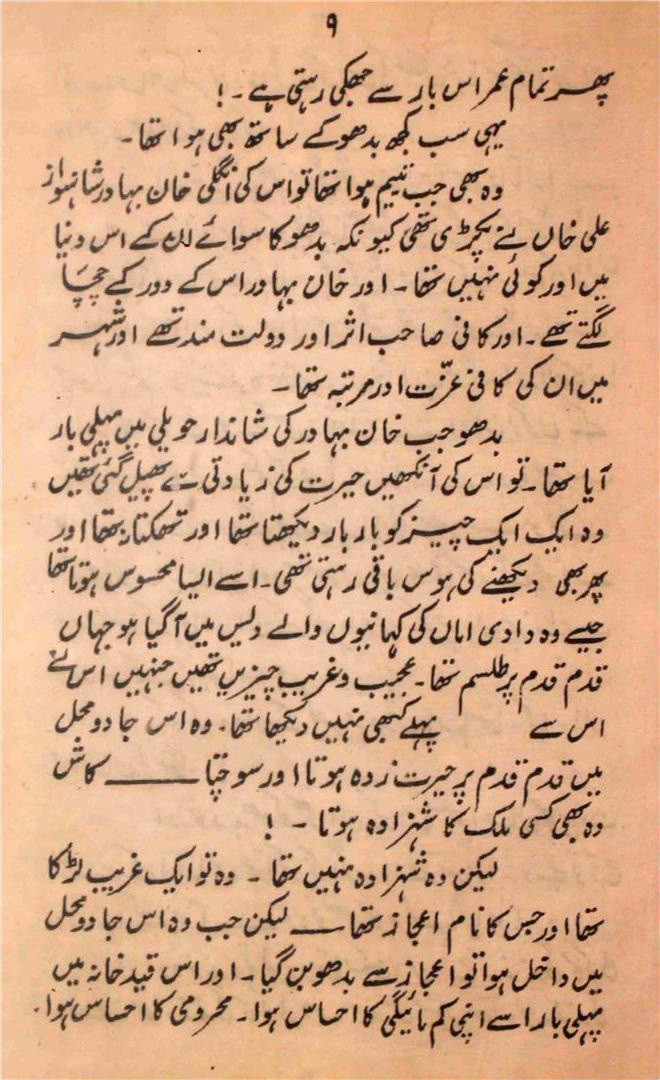 ۹
پھر تمام عمر اس بار سے جھکی رہتی ہے۔!
یہی سب کچھ بدھو کے ساتھ بھی ہوا تھا۔
وہ بھی جب یتیم ہوا تھا تو اس کی انگلی خان بہادر شاہنواز
علی خاں نے پکڑی تھی کیونکہ بدھو کا سوائے ان کے اس دنیا
میں اور کوئی نہیں تھا۔ اور خان بہادر اس کے دور کے چچا
لگتے تھے۔ اور کافی صاحب اثر اور دولت مند تھے اور شہر
میں ان کی کافی عزّت اور مرتبہ تھا۔
بدھو جب خان بہادر کی شاندار حویلی میں پہلی بار
آیا تھا۔ تو اس کی آنکھیں حیرت کی زیادتی سے پھیل گئی تھیں
وہ ایک ایک چیز کو بار بار دیکھتا تھا اور تھکتا نہ تھا اور
پھر بھی دیکھنے کی ہوس باقی رہتی تھی۔ اسے ایسا محسوس ہوتا تھا
جیسے وہ دادی اماں کی کہانیوں والے دیس میں آگیا ہو جہاں
قدم قدم پر طلسم تھا۔ عجیب و غریب چیزیں تھیں جنہیں اس نے
اس سے پہلے کبھی نہیں دیکھا تھا۔ وہ اس جادو محل
میں قدم قدم پر حیرت زدہ ہوتا اور سوچتا ——— کاش
وہ بھی کسی ملک کا شہزادہ ہوتا ۔!
لیکن وہ شہزادہ نہیں تھا ۔ وہ تو ایک غریب لڑکا
تھا اور جس کا نام اعجاز تھا —— لیکن جب وہ اس جادو محل
میں داخل ہوا تو اعجاز سے بدھو بن گیا۔ اور اس قید خانہ میں
پہلی بار اسے اپنی کم مائیگی کا احساس ہوا۔ محرومی کا احساس ہوا۔